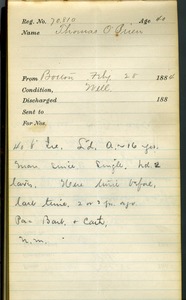 Reg. No. 70810 Age 40
Name Thomas O'Brien
From Boston Feby 25 188
Condition, Well
Discharged 188
Sent to
For Nos.
40 Ire. S'd. A. ~ 16 yrs.
Single,
Here twice before,
last time, 2 or 3 yrs ago.
Par Bart. & Cath.
N.M.